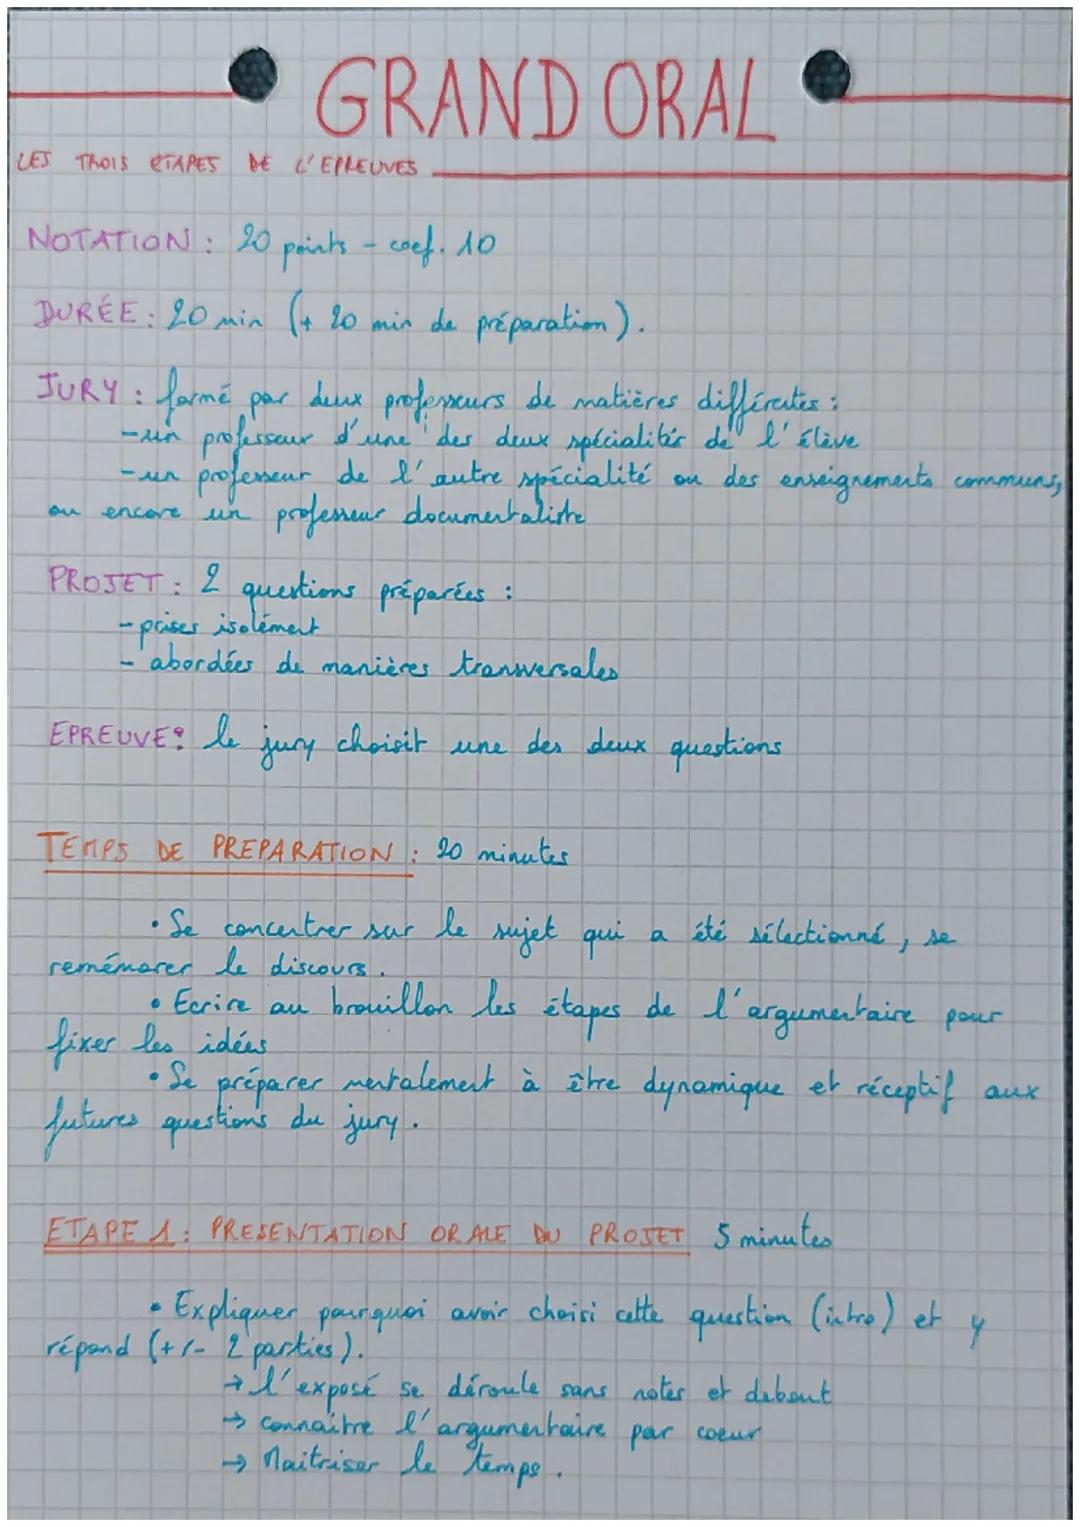 GRAND ORAL
LES TROIS ETAPES DE L'EPREUVES
NOTATION : 20 points - coef. 10
DURÉE : 20 min (+ 20 min de préparation).
JURY : formé par deux professeurs de matières différentes :
- un professeur d'une des deux spécialités de l'élève
- un professeur de l'autre spécialité ou des enseignements communs,
ou encore un professeur documentaliste
PROJET : 2 questions préparées :
- prises isolément
- abordées de manières transversales
EPREUVE : le jury choisit une des deux questions
TEMPS DE PREPARATION : 20 minutes
• Se concentrer sur le sujet qui a été sélectionné, se
remémorer le discours.
• Ecrire au brouillon les étapes de l'argumentaire pour
fixer les idées
• Se préparer mentalement à être dynamique et réceptif aux
futures questions du jury.
ETAPE 1 : PRESENTATION ORALE DU PROJET 5 minutes
• Expliquer pourquoi avoir choisi cette question (intro) et y
répond (+/- 2 parties).
→ l'exposé se déroule sans notes et debout
→ connaitre l'argumentaire par coeur
→ Maitriser le temps.